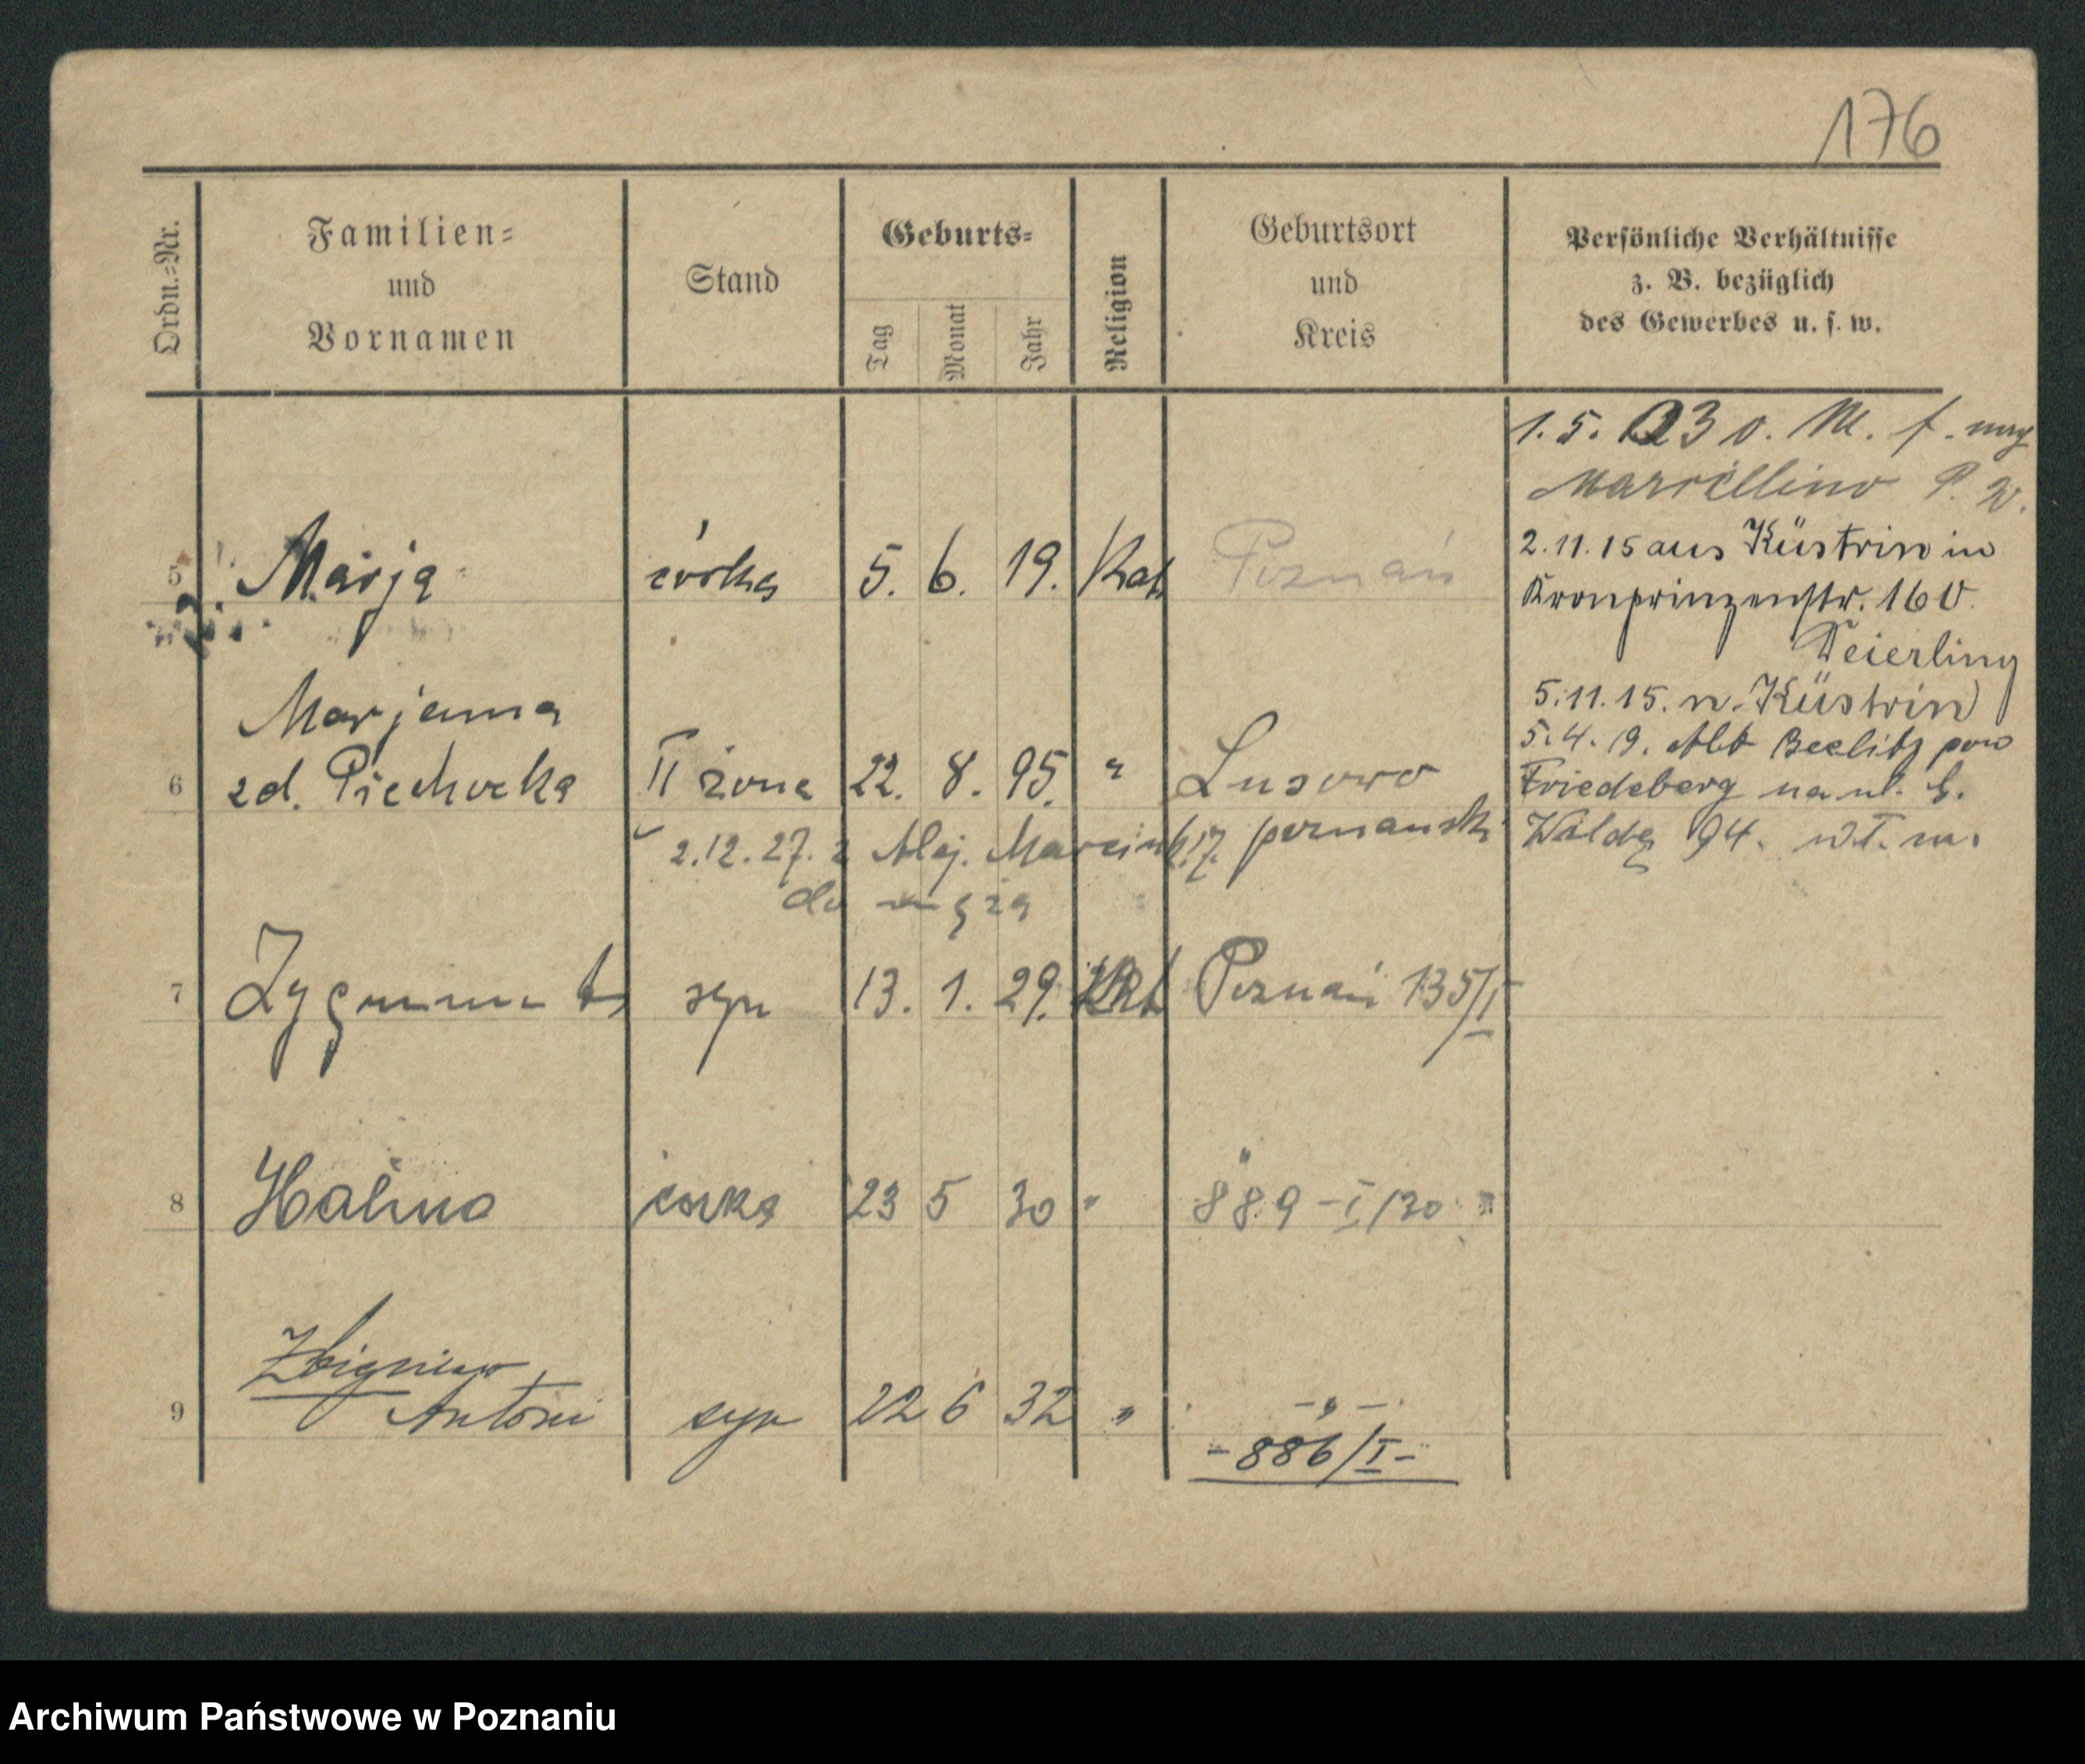 176
Ordn.=Nr.
Familien=
und
Vornamen
Stand
Geburts=
Tag
Monat
Jahr
Religion
Geburtsort
und
Kreis
Persönliche Verhältnisse
z. B. bezüglich
des Gewerbes u. s. w.
1. 5. 23 v. M. f.
P. W.
5 Marja córka 5. 6. 19. Kat. Poznań
2.11.15 aus Küstrin in
Kronprinzenstr. 160
Feierling
5.11.15. n. Küstrin
Marjanna
6 zd. Piechocka II żona 22. 8. 95. " Lusowo
5.4.19. Alt Beelitz pow
Friedeberg na ul. G.
2.12.27. z Alej. Marcink. 17. poznański
Waldg 94. w.T. m.
do męża
7 Zygmunt syn 13. 1. 29. Kat Poznań 135/I
8 Halina córka 23 5 30 " "
889-I/30
Zbigniew,
9 Antoni syn 22 6 32 " -"-
-886/I-
Archiwum Państwowe w Poznaniu